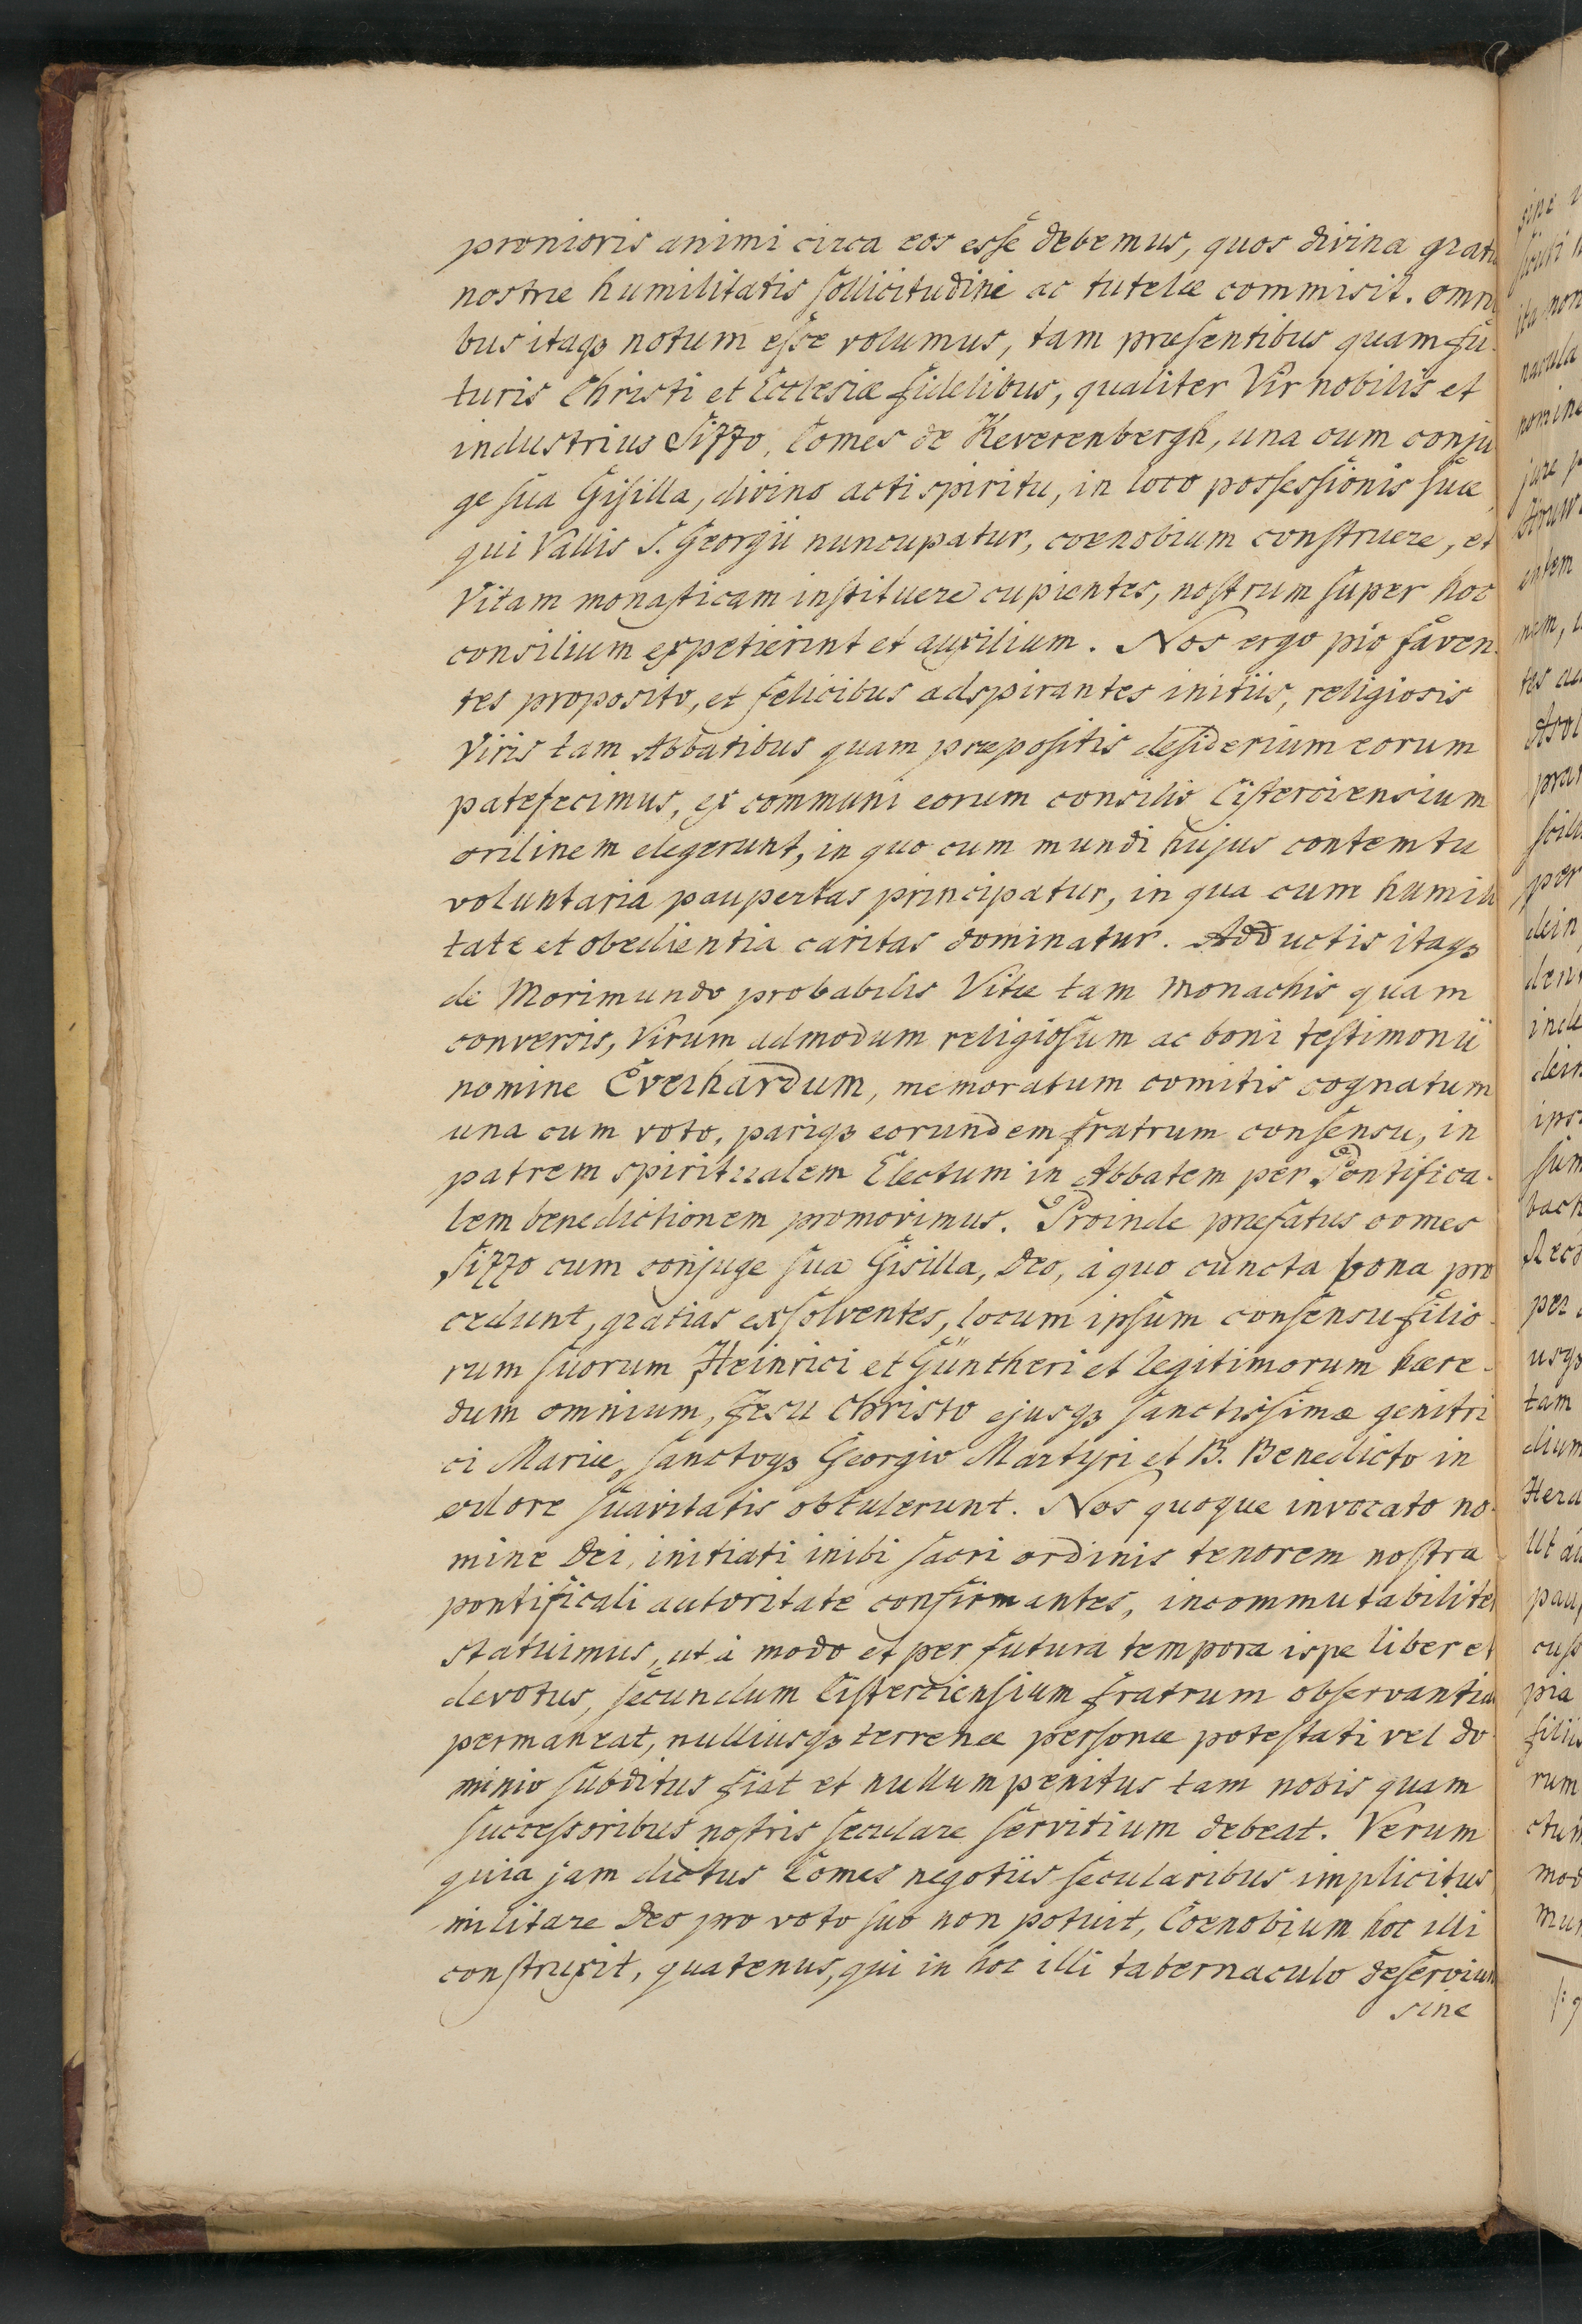 pronioris animi circa eos esse debemus, quos divina grati
nostræ humilitatis sollicitudini ac tutelæ commisit. omni
bus itaqꝫ notum esse volumus, tam præsentibus quam fu-
turis Christi et Ecclesiæ fidelibus, qualiter Vir nobilis et
industrius Sizzo, Comes de Keverenbergh, una cum conju
ge sua Gisilla, divino acti spiritu, in loco possessionis suæ,
qui Vallis S. Georgii nuncupatur, coenobium construere, et
Vitam monasticam instituere cupientes, nostrum super hoc
consilium expetierint et auxilium. Nos ergo pio faven-
tes proposito, et felicibus adspirantes initiis, religiosis
Viris tam Abbatibus quam præpositis desiderium eorum
patefecimus, ex communi eorum consilio Cisterciensium
ordinem elegerunt, in quo cum mundi hujus contemtu
voluntaria paupertas principatur, in qua cum humili
tate et obedientia caritas dominatur. Adductis itaqꝫ
de Morimundo probabilis Vitæ tam monachis quam
conversis, Virum admodum religiosum ac boni testimonii
nomine Everhardum, memoratum comitis cognatum
una cum voto, pariqꝫ eorundem fratrum consensu, in
patrem spiritualem Electum in Abbatem per Pontifica-
lem benedictionem promovimus. Proinde præfatus comes
Sizzo cum conjuge sua Gisilla, Deo, à quo cuncta bona pro
cedunt, gratias exsolventes, locum ipsum consensu filio-
rum suorum Heinrici et Güntheri et legitimorum hære-
dum omnium, Jesu Christo ejusqꝫ sanctissimæ genitri
ci Mariæ, sanctoqꝫ Georgio Martyri et B. Benedicto in
odore suavitatis obtulerunt. Nos quoque invocato no-
mine Dei, initiati inibi sacri ordinis tenorem nostra
pontificali autoritate confirmantes, incommutabiliter
statuimus, ut à modo et per futura tempora ispe liber et
devotus, secundum Cisterciensium fratrum observantia
permaneat, nulliusqꝫ terrenæ personæ potestati vel do-
minio subditus fiat et nullum penitus tam nobis quam
successoribus nostris seculare servitium debeat. Verum
quia jam dictus Comes negotiis secularibus implicitus
militare Deo pro voto suo non potuit, Coenobium hoc illi
construxit, quatenus, qui in hoc illi tabernaculo deserviun
sine